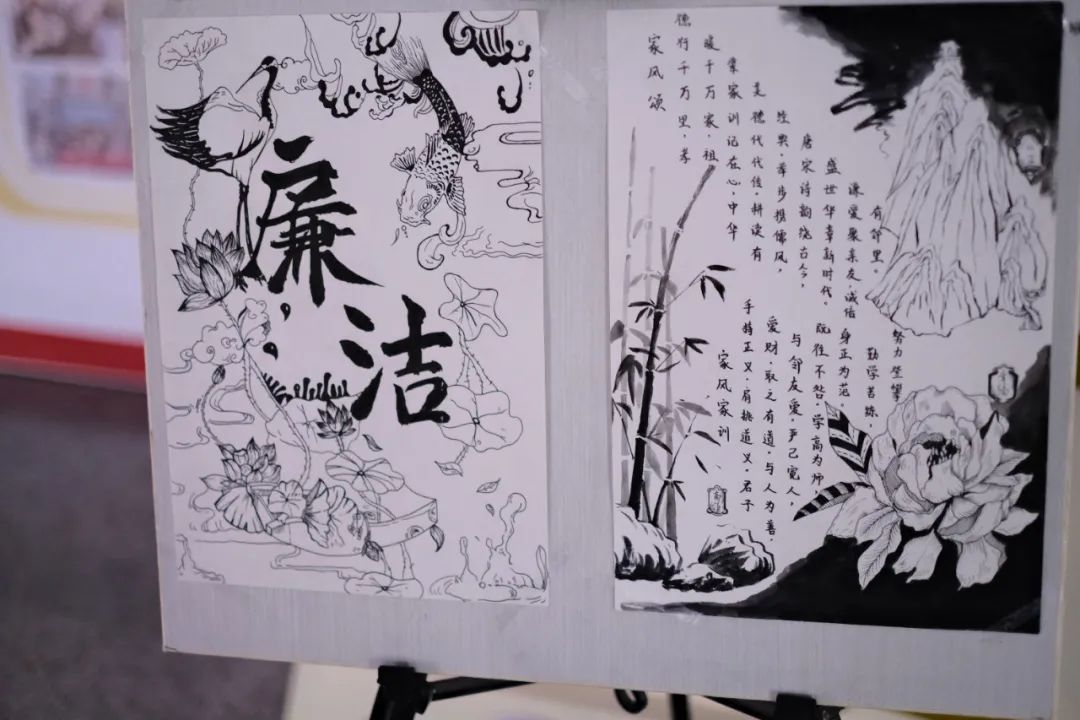 廉洁
家风颂
德行千万里,孝
暖千万家。祖
辈家训记在心,中华
美德代代传。耕读有
经典,举步携儒风,
唐宋诗韵绕古今,
盛世华章新时代。
谦爱聚亲友,诚信
有邻里。
家风家训
手持正义,肩挑道义,君子
爱财,取之有道,与人为善,
与邻友爱,严己宽人,
既往不咎。学高为师
身正为范。
勤学苦练,
努力